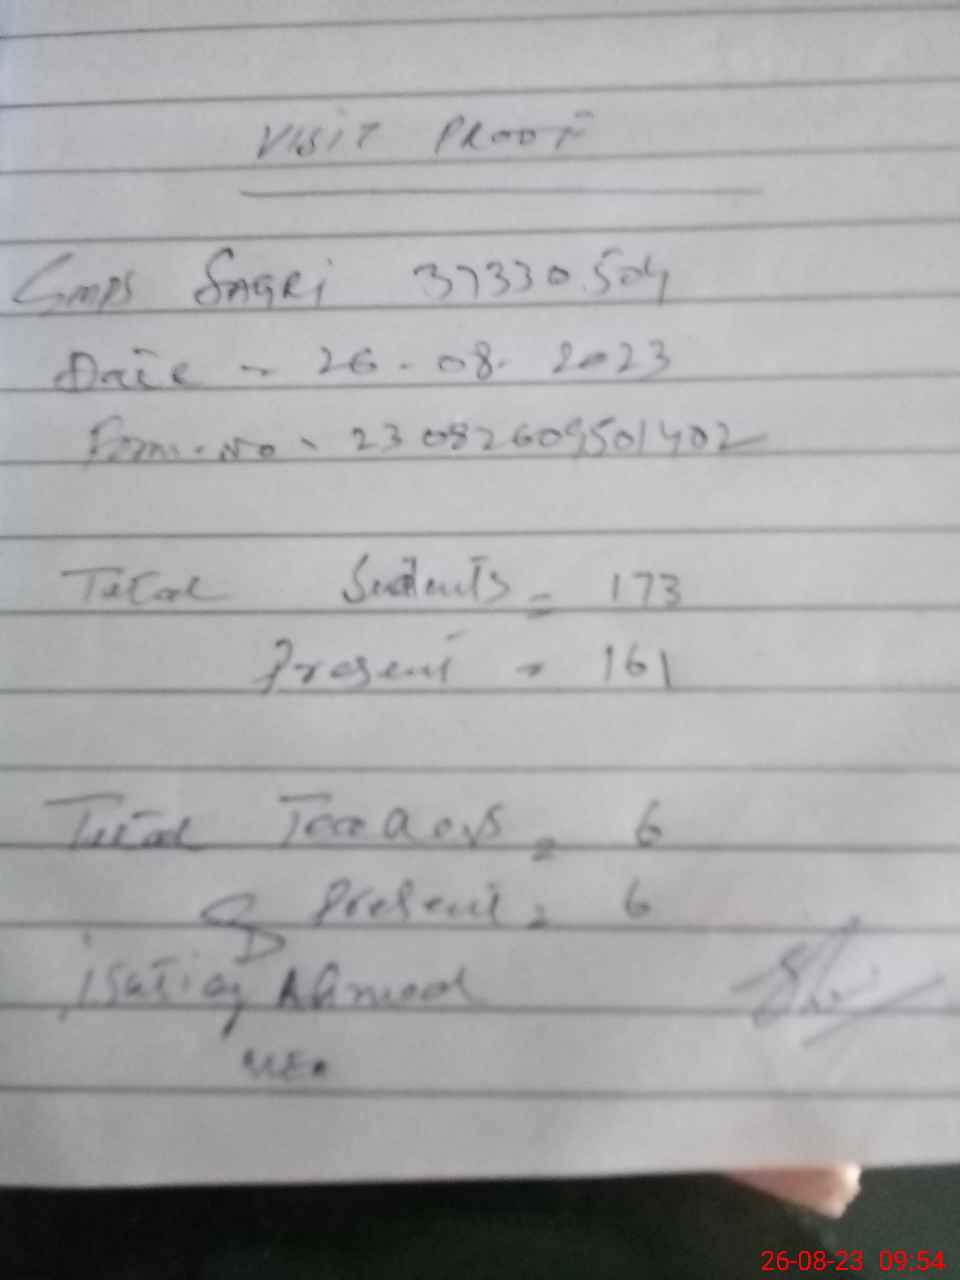 VISIT PROOF
GMPS SAGRI 37330504
Date - 26-08-2023
Form-No - 23082609501402
Total Students = 173
Present = 161
Total Teachers = 6
Present = 6
Ahmad
MEA
26-08-23 09:54